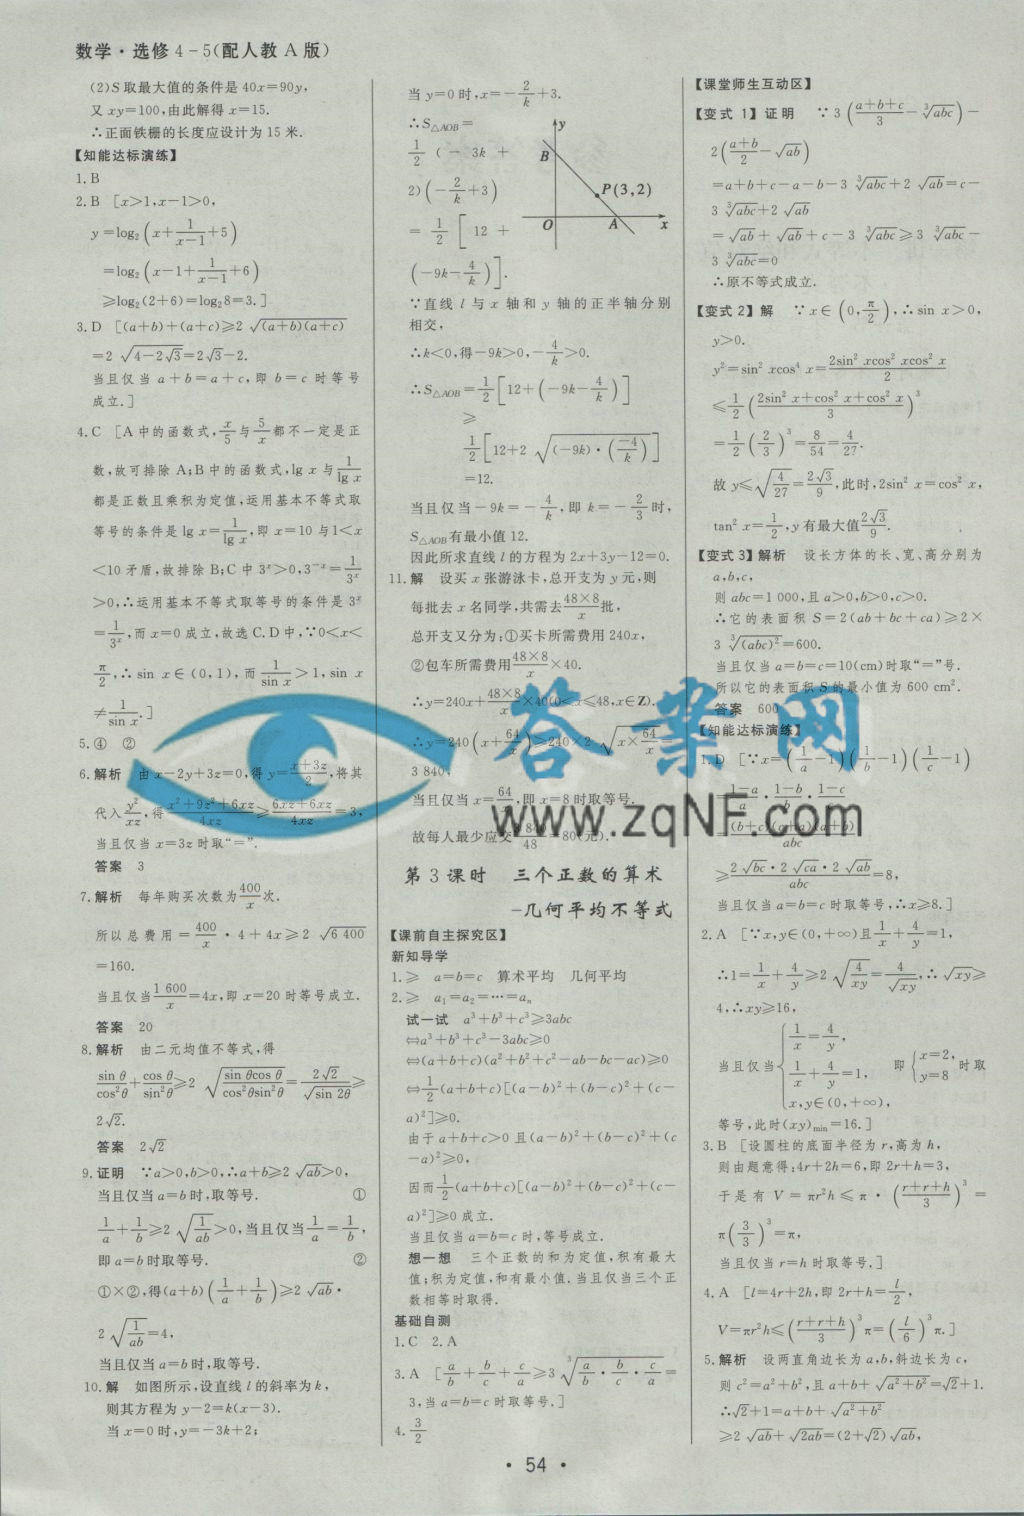 数学·选修 4-5(配人教 A 版)
(2)S 取最大值的条件是 40x=90y,
又 xy=100,由此解得 x=15.
∴正面铁栅的长度应设计为 15 米.
【知能达标演练】
1.B
2.B [x>1,x-1>0,
y=log₂(x+1/(x-1)+5)
=log₂(x-1+1/(x-1)+6)
≥log₂(2+6)=log₂8=3.]
3.D [(a+b)+(a+c)≥2√((a+b)(a+c))
=2√(4-2√3)=2√3-2.
当且仅当 a+b=a+c,即 b=c 时等号
成立.]
4.C [A 中的函数式,x/5与5/x都不一定是正
数,故可排除 A;B 中的函数式,lg x 与1/lg x
都是正数且乘积为定值,运用基本不等式取
等号的条件是 lg x=1/lg x,即 x=10 与 1<x
<10 矛盾,故排除 B;C 中 3ˣ>0,3⁻ˣ=1/3ˣ
>0,∴运用基本不等式取等号的条件是 3ˣ
=1/3ˣ,而 x=0 成立,故选 C.D 中,∵0<x<
π/2,∴sin x∈(0,1),而1/sin x>1,sin x
≠1/sin x.]
5.④ ②
6.解析 由 x-2y+3z=0,得 y=(x+3z)/2,将其
代入y²/xz,得(x²+9z²+6xz)/4xz≥(6xz+6xz)/4xz=3,
当且仅当 x=3z 时取“=”.
答案 3
7.解析 每年购买次数为400/x次.
所以总费用=400/x·4+4x≥2√6 400
=160.
当且仅当1 600/x=4x,即 x=20 时等号成立.
答案 20
8.解析 由二元均值不等式,得
sin θ/cos²θ+cos θ/sin²θ≥2√(sin θcos θ/cos²θsin²θ)=2√2/√(sin 2θ)≥
2√2.
答案 2√2
9.证明 ∵a>0,b>0,∴a+b≥2√ab>0,
当且仅当 a=b 时,取等号. ①
1/a+1/b≥2√(1/ab)>0,当且仅当1/a=1/b,
即 a=b 时取等号. ②
①×②,得(a+b)(1/a+1/b)≥2√ab·
2√(1/ab)=4,
当且仅当 a=b 时,取等号.
10.解 如图所示,设直线 l 的斜率为 k,
则其方程为 y-2=k(x-3).
当 x=0 时,y=-3k+2;
当 y=0 时,x=-2/k+3.
∴S△AOB=
1/2(-3k+
2)(-2/k+3)
=1/2[12+
(-9k-4/k)].
y
B
P(3,2)
O
A
x
∵直线 l 与 x 轴和 y 轴的正半轴分别
相交,
∴k<0,得-9k>0,-4/k>0.
∴S△AOB=1/2[12+(-9k-4/k)]
≥
1/2[12+2√((-9k)·(-4/k))]
=12.
当且仅当-9k=-4/k,即 k=-2/3时,
S△AOB有最小值 12.
因此所求直线 l 的方程为 2x+3y-12=0.
11.解 设买 x 张游泳卡,总开支为 y 元,则
每批去 x 名同学,共需去48×8/x批,
总开支又分为:①买卡所需费用 240x,
②包车所需费用48×8/x×40.
∴y=240x+48×8/x×40(0<x≤48,x∈Z).
∴y=240(x+64/x)≥240×2√(x×64/x)
3 840,
当且仅当 x=64/x,即 x=8 时取等号.
故每人最少应交3 840/48=80(元).
第 3 课时 三个正数的算术
-几何平均不等式
【课前自主探究区】
新知导学
1.≥ a=b=c 算术平均 几何平均
2.≥ a₁=a₂=…=aₙ
试一试 a³+b³+c³≥3abc
⇔a³+b³+c³-3abc≥0
⇔(a+b+c)(a²+b²+c²-ab-bc-ac)≥0
⇔1/2(a+b+c)[(a-b)²+(b-c)²+(c-
a)²]≥0.
由于 a+b+c>0 且(a-b)²+(b-c)²+(c
-a)²≥0,
因而1/2(a+b+c)[(a-b)²+(b-c)²+(c-
a)²]≥0 成立.
当且仅当 a=b=c 时,等号成立.
想一想 三个正数的和为定值,积有最大
值;积为定值,和有最小值.当且仅当三个正
数相等时取得.
基础自测
1.C 2.A
3.A [a/b+b/c+c/a≥3∛(a/b·b/c·c/a)=
3,当 a=b=c 时取等号.]
4.3/2
【课堂师生互动区】
【变式 1】证明 ∵3((a+b+c)/3-∛abc)-
2((a+b)/2-√ab)
=a+b+c-a-b-3∛abc+2√ab=c-
3∛abc+2√ab
=√ab+√ab+c-3∛abc≥3∛abc-
3∛abc=0
∴原不等式成立.
【变式 2】解 ∵x∈(0,π/2),∴sin x>0,
y>0.
y²=sin²xcos⁴x=2sin²xcos²xcos²x/2
≤1/2((2sin²x+cos²x+cos²x)/3)³
=1/2(2/3)³=8/54=4/27.
故 y≤√(4/27)=2√3/9,此时,2sin²x=cos²x,
tan²x=1/2,y 有最大值2√3/9.
【变式 3】解析 设长方体的长、宽、高分别为
a,b,c,
则 abc=1 000,且 a>0,b>0,c>0.
∴它的表面积 S=2(ab+bc+ca)≥2×
3∛(abc)²=600.
当且仅当 a=b=c=10(cm)时取“=”号.
所以它的表面积 S 的最小值为 600 cm².
答案 600
【知能达标演练】
1.D [∵x=(1/a-1)(1/b-1)(1/c-1)
=(1-a)/a·(1-b)/b·(1-c)/c
=(b+c)(c+a)(a+b)/abc
≥2√bc·2√ca·2√ab/abc=8,
当且仅当 a=b=c 时取等号,∴x≥8.]
2.A [∵x,y∈(0,+∞)且1/x+4/y=1,
∴1=1/x+4/y≥2√(4/xy)=4/√xy,∴√xy≥
4,∴xy≥16,
当且仅当{1/x=4/y, 1/x+4/y=1, x,y∈(0,+∞), 即{x=2, y=8 时取
等号,此时(xy)min=16.]
3.B [设圆柱的底面半径为 r,高为 h,
则由题意得:4r+2h=6,即 2r+h=3,
于是有 V=πr²h≤π·((r+r+h)/3)³=
π(3/3)³=π,
当且仅当 r=h 时取等号.]
4.A [l=4r+2h,即 2r+h=l/2,
V=πr²h≤((r+r+h)/3)³π=(l/6)³π.]
5.解析 设两直角边长为 a,b,斜边长为 c,
则 c²=a²+b²,且 a+b+√(a²+b²)=√2+1.
∴√2+1=a+b+√(a²+b²)
≥2√ab+√2ab=(2+√2)√ab,
答案网
www.zqNF.com
·54·